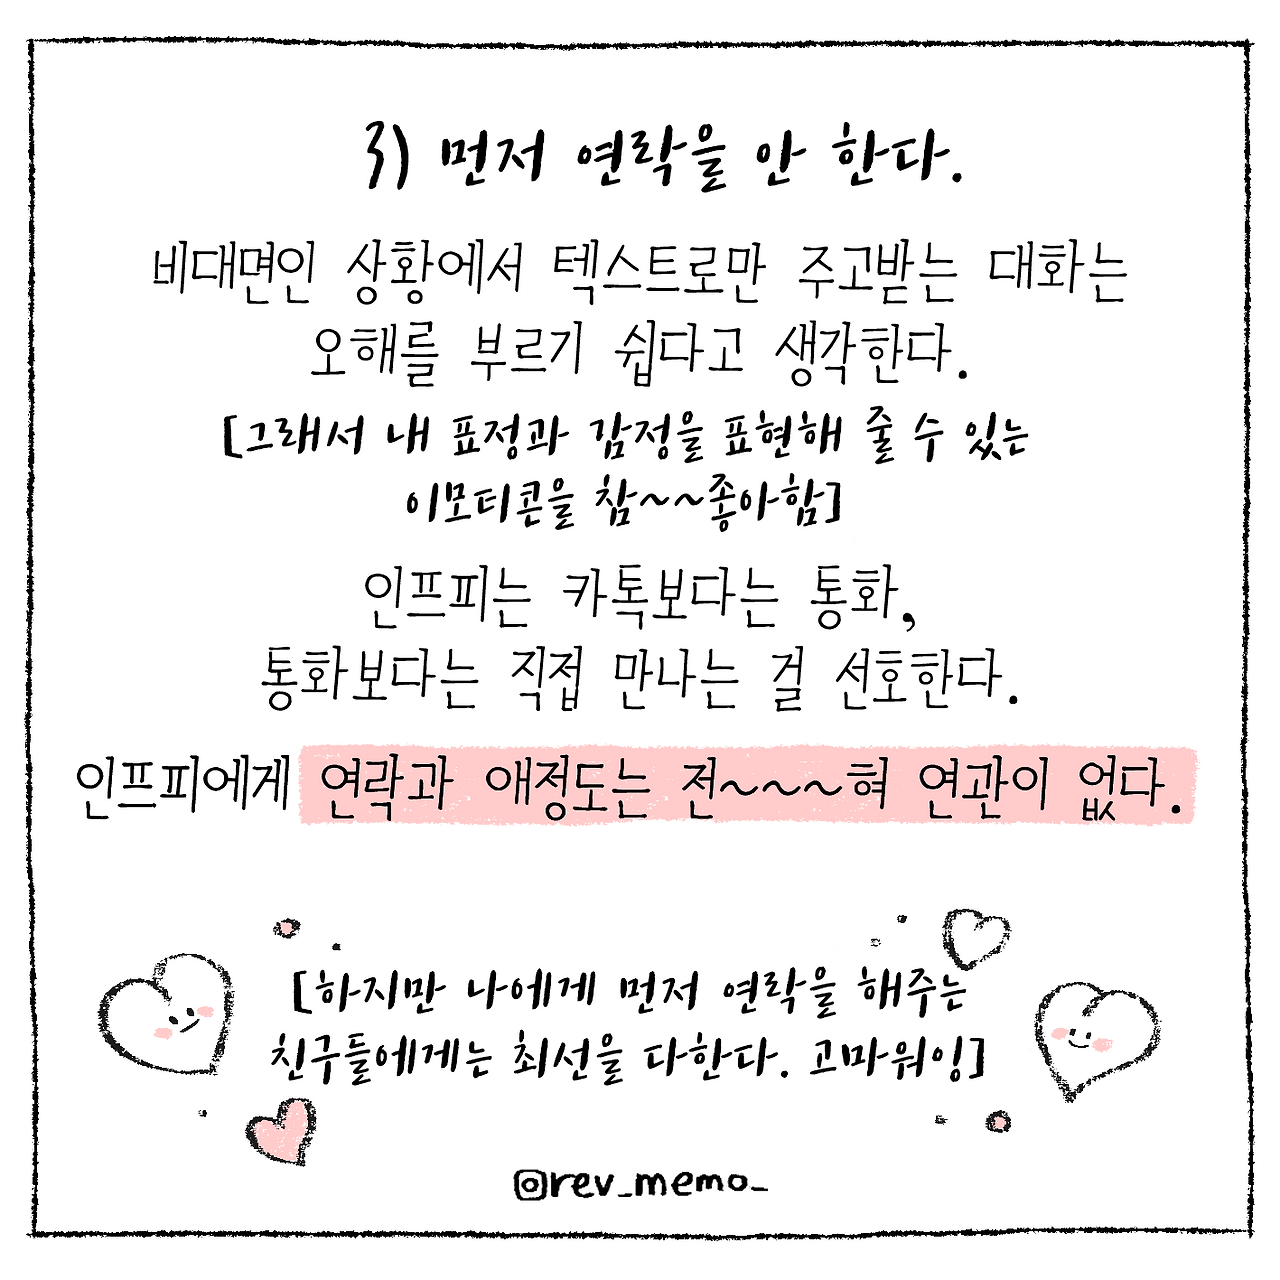 3) 먼저 연락을 안 한다.
비대면인 상황에서 텍스트로만 주고받는 대화는
오해를 부르기 쉽다고 생각한다.
[그래서 내 표정과 감정을 표현해 줄 수 있는
이모티콘을 참~~좋아함]
인프피는 카톡보다는 통화,
통화보다는 직접 만나는 걸 선호한다.
인프피에게 연락과 애정도는 전~~~혀 연관이 없다.
[하지만 나에게 먼저 연락을 해주는
친구들에게는 최선을 다한다. 고마워잉]
@rev_memo_